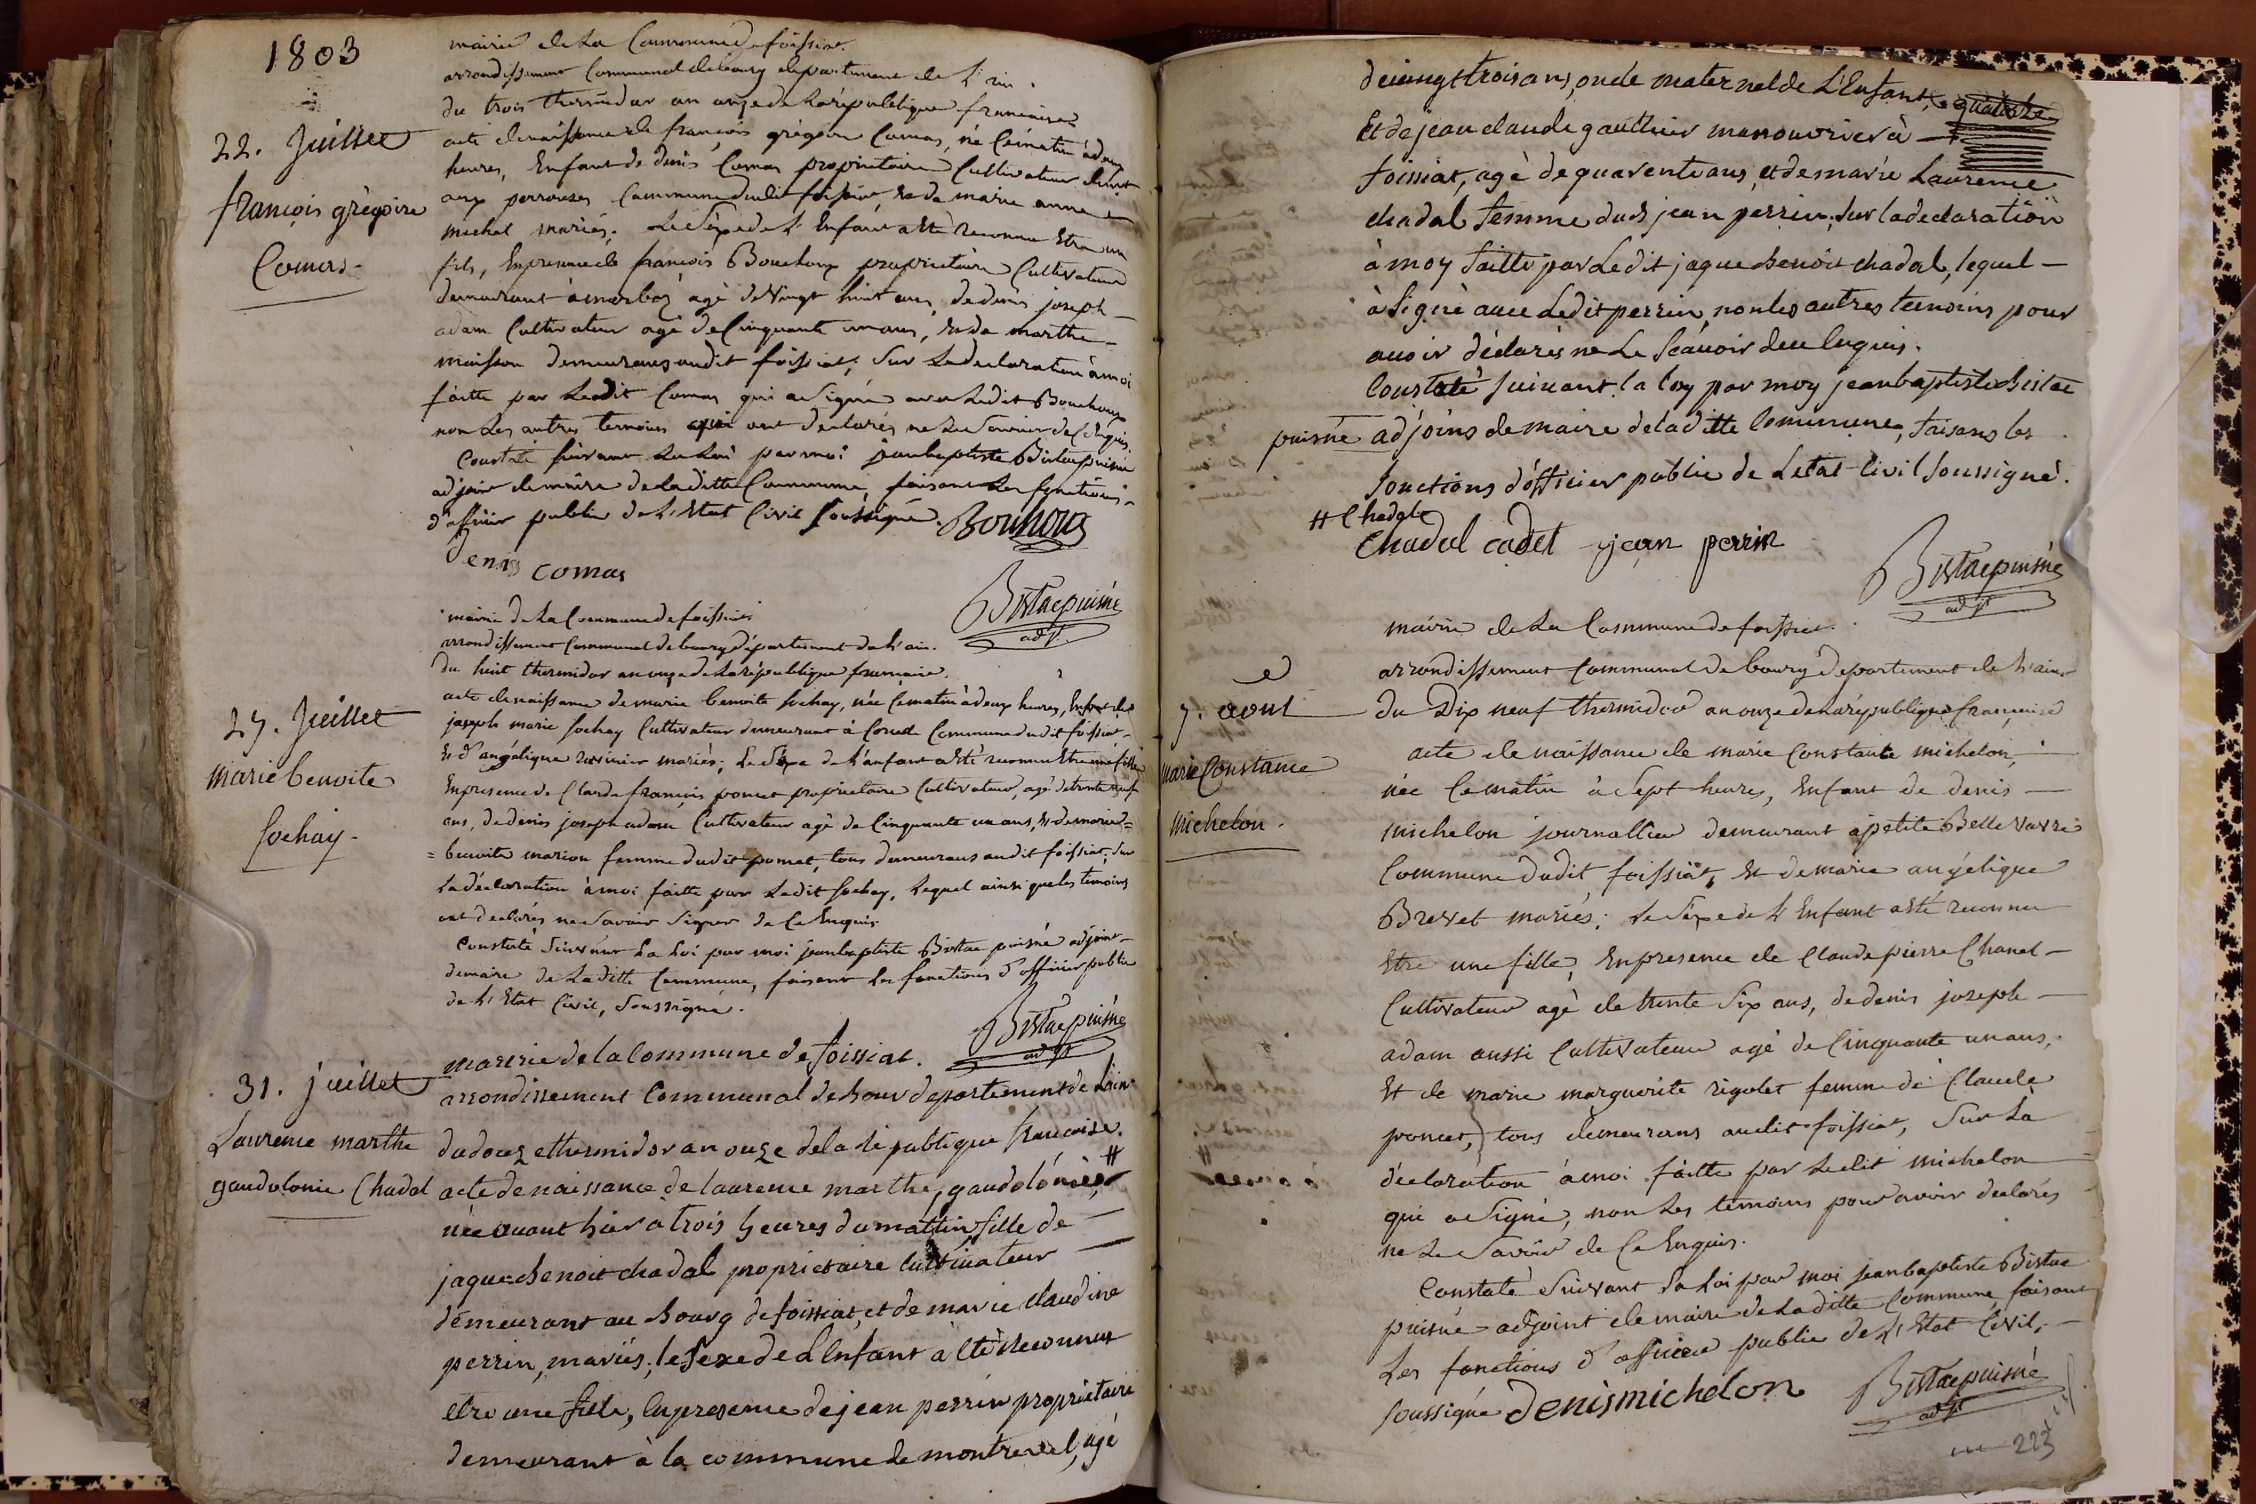 1803
mairie de la Commune de foissiat.
arrondissement Communal de bourg departement de L'ain.
du trois thermidor an onze de la republique francaise
22. Juillet
françois grégoire
Comas.
acte de naissance de françois grégoire Comas, né Cematin à deux
heures, Enfant de denis Comas propriétaire Cultivateur demt
aux perrouses Commune dudit foissiat, et de marie anne
michel mariés. Le Sexe de L'Enfant a été reconnu Etre un
fils, En presence de françois Bouchoux propriétaire Cultivateur
demeurant à marboz agé de Vingt huit ans, de denis joseph
adam Cultivateur agé de Cinquante un ans, et de marthe
maisson demeurans audit foissiat; Sur la declaration à moi
faitte par Ledit Comas qui a Signé avec Ledit Bouchoux
non Les autres temoins qui ont declarés ne Le Savoir de Ce Enquis
Constaté suivant La Loi par moi jeanbaptiste Bistac puisné
adjoint de maire de Laditte Commune, faisant Les fonctions
d'officier public de L'Etat Civil Soussigné. Bouchoux
Denis comas
Bistac puisné
adjt
mairie de La Commune de foissiat
arrondissement Communal de bourg département de L'ain.
du huit thermidor an onze de La république francaise.
27. Juillet
marie benoite
Sochay.
acte de naissance de marie benoite Sochay, née Cematin à deux heures, Enfant de
joseph marie Sochay Cultivateur demeurant à Cornet Commune dudit foissiat
Et d'angélique mariés; Le Sexe de L'enfant a été reconnu Etre une fille
En presence de Claude françois poncet propriétaire Cultivateur, agé de trente neuf
ans, de denis joseph adam Cultivateur agé de Cinquante un ans, et de marie=
=benoite marion femme dudit poncet, tous demeurans audit foissiat; Sur
La déclaration à moi faitte par Ledit Sochay, Lequel ainsi que les temoins
ont declarés ne Savoir Signer de Ce Enquis
Constaté Suivant La Loi par moi jeanbaptiste Bistac puisné adjoint
de maire de Laditte Commune, faisant Les fonctions d'officier public
de L'Etat Civil, Soussigné.
Bistac puisné
adjt
mairie de la Commune de foissiat.
arrondissement Communal de bour departement de L'ain
31. juillet
Laurence marthe
gaudolonie Chadal
du douze thermidor an onze de la république francaise.
acte de naissance de laurence marthe, gaudolonie, #
née avant hier a trois heures du mattin, fille de
jaque benoit chadal propriétaire Cultivateur
démeurant au bourg de foissiat, et de marie claudine
perrin, mariés; le Sexe de L'enfant a été reconnu
etre une fille, En presence de jean perrin propriétaire
demeurant à la commune de montrevel, agé
de vingt trois ans, oncle maternel de L'Enfant,
Et de jean claude gauthier manouvrier à
foissiat, agé de quarente ans, et de marie Laurence
chadal femme dud. jean perrin, sur la declaration
à moy faitte par Ledit jaque benoit chadal, lequel
à Signé avec Ledit perrin, non les autres temoins pour
avoir déclarés ne Le Scavoir de ce enquis.
Constaté suivant la loy par moy jean baptiste bistac
puisné adjoint de maire de laditte Commune, faisant les
fonctions d'officier public de Letat Civil soussigné.
# Chadal
Chadal cadet jean perrin
Bistac puisné
adjt
mairie de La Commune de foissiat.
arrondissement Communal de bourg departement de L'ain
7. aout
marie Constance
michelon.
du Dix neuf thermidor an onze de La république française
acte de naissance de marie Constante michelon,
née Cematin à Sept heures, Enfant de denis
michelon journallier demeurant à petite Bellevavre
Commune dudit foissiat, Et de marie angélique
Brevet mariés; Le Sexe de L'Enfant a été reconnu
Etre une fille, En presence de Claude pierre Chanel
Cultivateur agé de trente Six ans, de denis joseph
adam aussi Cultivateur agé de Cinquante un ans,
Et de marie marguerite rigolet femme de Claude
poncet, tous demeurans audit foissiat, Sur La
déclaration à moi faitte par Ledit michelon
qui a Signé, non Les temoins pour avoir declarés
ne Le Savoir de Ce Enquis.
Constaté Suivant La Loi par moi jeanbaptiste Bistac
puisné adjoint de maire de Laditte Commune faisant
Les fonctions d'officier public de L'Etat Civil,
Soussigné Denis michelon
Bistac puisné
adjt
223